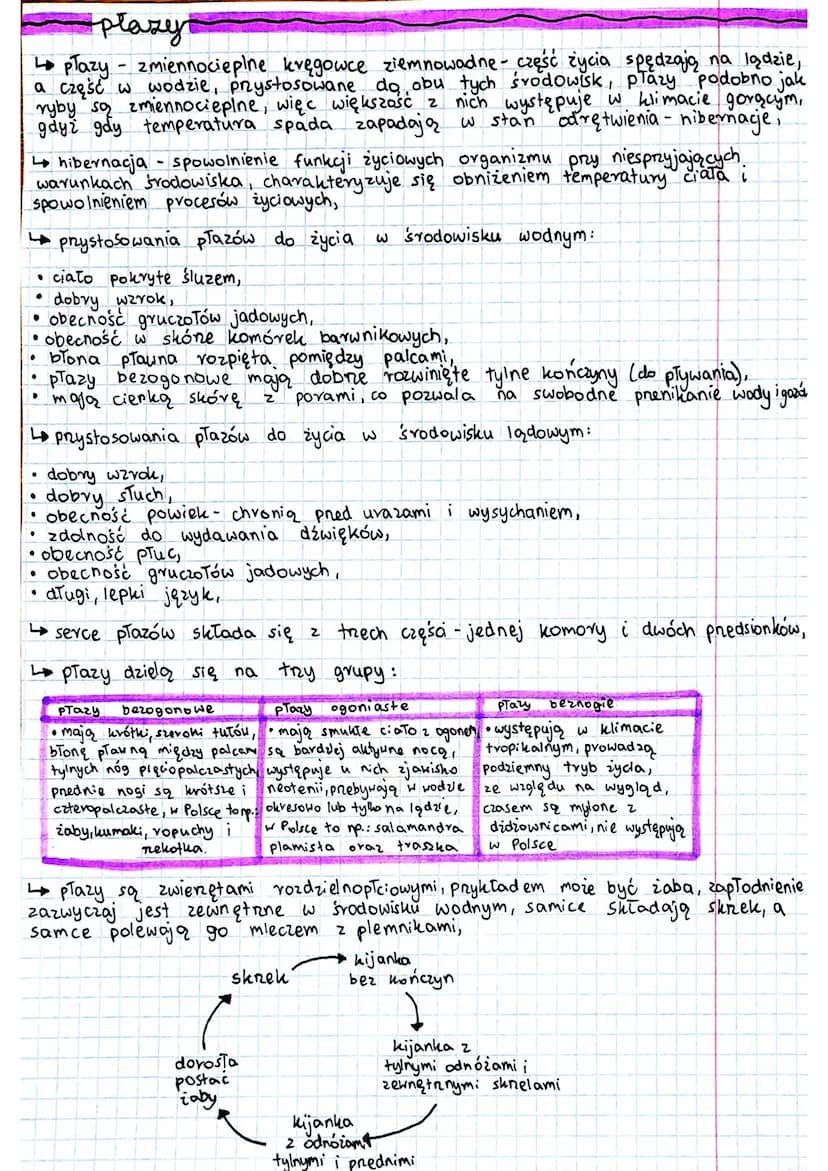 płazy
↳ płazy - zmiennocieplne kręgowce ziemnowodne - część życia spędzają na lądzie,
a część w wodzie, przystosowane do obu tych środowisk, płazy podobno jak
ryby są zmiennocieplne, więc większość z nich występuje w klimacie gorącym,
gdyż gdy temperatura spada zapadają w stan odrętwienia - hibernację,
↳ hibernacja - spowolnienie funkcji życiowych organizmu przy niesprzyjających
warunkach środowiska, charakteryzuje się obniżeniem temperatury ciała i
spowolnieniem procesów życiowych,
↳ przystosowania płazów do życia w środowisku wodnym:
• ciało pokryte śluzem,
• dobry wzrok,
• obecność gruczołów jadowych,
• obecność w skórze komórek barwnikowych,
• błona pławna rozpięta pomiędzy palcami,
• płazy bezogonowe mają dobrze rozwinięte tylne kończyny (do pływania),
• mają cienką skórę z porami, co pozwala na swobodne przenikanie wody i gazów
↳ przystosowania płazów do życia w środowisku lądowym:
• dobry wzrok,
• dobry słuch,
• obecność powiek - chronią przed urazami i wysychaniem,
• zdolność do wydawania dźwięków,
• obecność płuc,
• obecność gruczołów jadowych,
• długi, lepki język,
↳ serce płazów składa się z trzech części - jednej komory i dwóch przedsionków,
↳ płazy dzielą się na trzy grupy:
płazy bezogonowe
• mają krótki, szeroki tułów,
błonę pławną między palcami
tylnych nóg pięciopalczastych,
przednie nogi są krótsze i
czteropalczaste, w Polsce to np.:
żaby, kumaki, ropuchy i
rzekotka.
płazy ogoniaste
• mają smukłe ciało z ogonem,
są bardziej aktywne nocą,
występuje u nich zjawisko
neotenii, przebywają w wodzie
okresowo lub tylko na lądzie,
w Polsce to np.: salamandra
plamista oraz traszka
płazy beznogie
• występują w klimacie
tropikalnym, prowadzą
podziemny tryb życia,
ze względu na wygląd,
czasem są mylone z
dżdżownicami, nie występują
w Polsce
↳ płazy są zwierzętami rozdzielnopłciowymi, przykładem może być żaba, zapłodnienie
zazwyczaj jest zewnętrzne w środowisku wodnym, samice składają skrzek, a
samce polewają go mleczem z plemnikami,
skrzek
kijanka
bez kończyn
kijanka z
tylnymi odnóżami i
zewnętrznymi skrzelami
kijanka
z odnóżami
tylnymi i przednimi
dorosła
postać
żaby